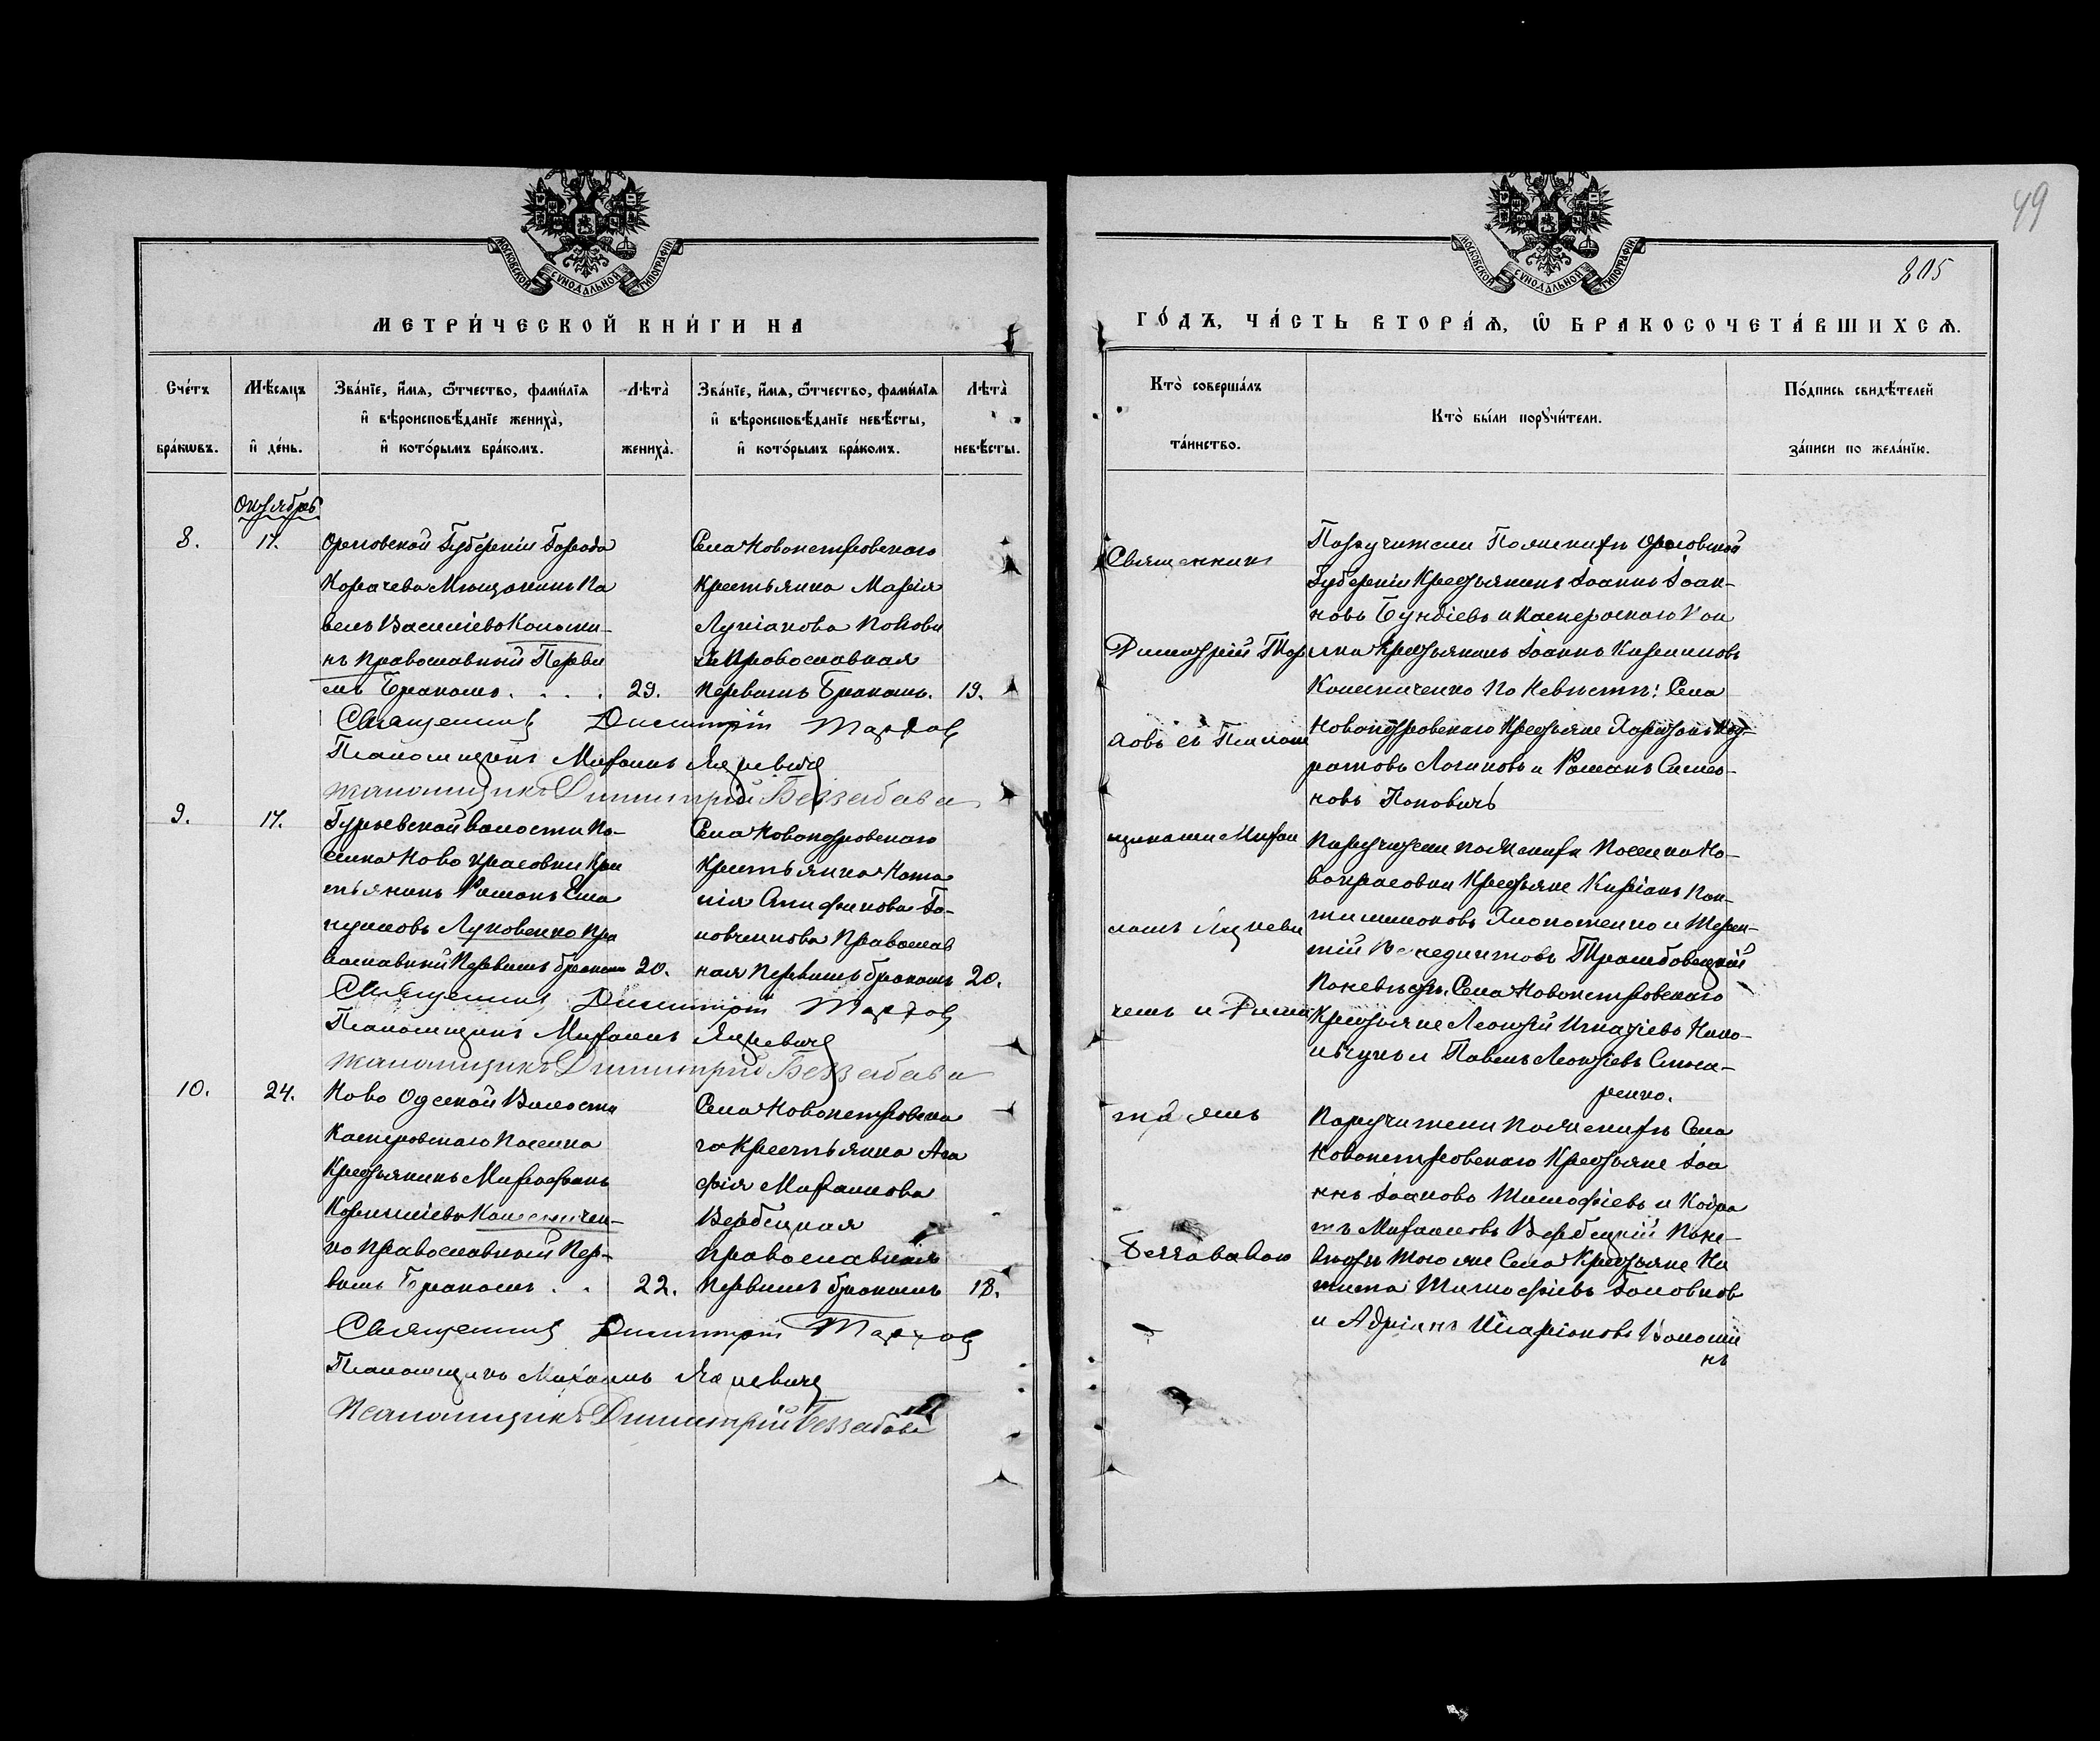 49
805
МОСКОВСКОЙ СѴНОДАЛЬНОЙ ТИПОГРАФІИ
МЕТРИ́ЧЕСКОЙ КНИ́ГИ НА
Сче́тъ бра́кѡвъ.
Мѣ́сяцъ и҆ де́нь.
Зва́нїе, и҆́мѧ, ѻ҆́тчество, фами́лїѧ
и҆ вѣроисповѣ́данїе жениха̀,
и҆ кото́рымъ бра́комъ.
Лѣта̀ жениха̀.
Зва́нїе, и҆́мѧ, ѻ҆́тчество, фами́лїѧ
и҆ вѣроисповѣ́данїе невѣ́сты,
и҆ кото́рымъ бра́комъ.
Лѣта̀ невѣ́сты.
Октябрь
8.
17.
Орловской Губерніи Города
Корачева Мющанинъ Па
велъ Василіевъ Коломи-
нъ православный Первы
мъ Бракомъ . . . .
29.
Села Новопетровскаго
крестьянка Марія
Лукіанова Попови
чъ Православная
первымъ Бракомъ.
19.
Священник Димитрій Тархов
Псаломщикъ Михаилъ Яцкевичъ
псаломщикъ Димитрій Беззабава
9.
17.
Гурьевской волости По-
селка Ново красовки Кре
стьянинъ Романъ Ема
нуиловъ Луковенко пра
вославный Первымъ бракомъ
20.
Села Новопетровскаго
крестьянка
Го-
ловченкова Православ
ная первымъ бракомъ
20.
Священник Димитрій Тархов
Псаломщикъ Михаилъ Яцкевичъ
псаломщикъ Димитрій Беззабава
10.
24.
Ново Одесской Волости
Касперовскаго Поселка
Крестьянинъ Митрофанъ
Корниліевъ Колесничен-
ко православный Пер-
вымъ Бракомъ . .
22.
Села Новопетровска
го Крестьянка Ага
фія Михаилова
Вербецкая
православная
первымъ бракомъ
18.
Священник Димитрій Тархов
Псаломщикъ Михаилъ Яцкевичъ
Псаломщикъ Димитрій Беззабава
МОСКОВСКОЙ СѴНОДАЛЬНОЙ ТИПОГРАФІИ
ГО́ДЪ, ЧА́СТЬ ВТОРА́Ѧ, Ѡ҆ БРАКОСОЧЕТА́ВШИХСѦ.
Кто̀ соверша́лъ та́инство.
Кто̀ бы́ли порꙋчи́тели.
По́дпись свидѣ́телей за́писи по жела́нїю.
Священникъ
Димитрій Тар
ховъ съ Псалом
щиками Михаи
ломъ Яцкеви
чемъ и Дими
тріемъ
Беззабавою
Поручители По женихѣ Орловской
Губерніи Крестьянинъ Іоаннъ Іоан-
новъ и Касперовскаго Посе
лка Крестьянинъ Іоаннъ
Колесниченко По Невѣстѣ: Села
Новопетровскаго Крестьяне Харитонъ Код-
ратовъ Логиновъ и Романъ Симео-
новъ Поповичъ
Поручители по Женихѣ Поселка Но-
вокрасовки Крестьяне Киріанъ Пан-
телимоновъ и Терен-
тій Венедиктовъ
По невѣстѣ, Села Новопетровскаго
Крестьяне Леонтій Игнатіевъ
и Павелъ Леонтіевъ
ренко.
Поручители по Женихѣ Села
Новопетровскаго Крестьяне Іоа
ннъ Іоановъ Тимофіевъ и Кодра
тъ Михаиловъ Вербецкій По не-
вѣстѣ того же Села Крестьяне Ни
кита Тимофіевъ Головков
и Адріанъ Иларіоновъ Волоши
нъ